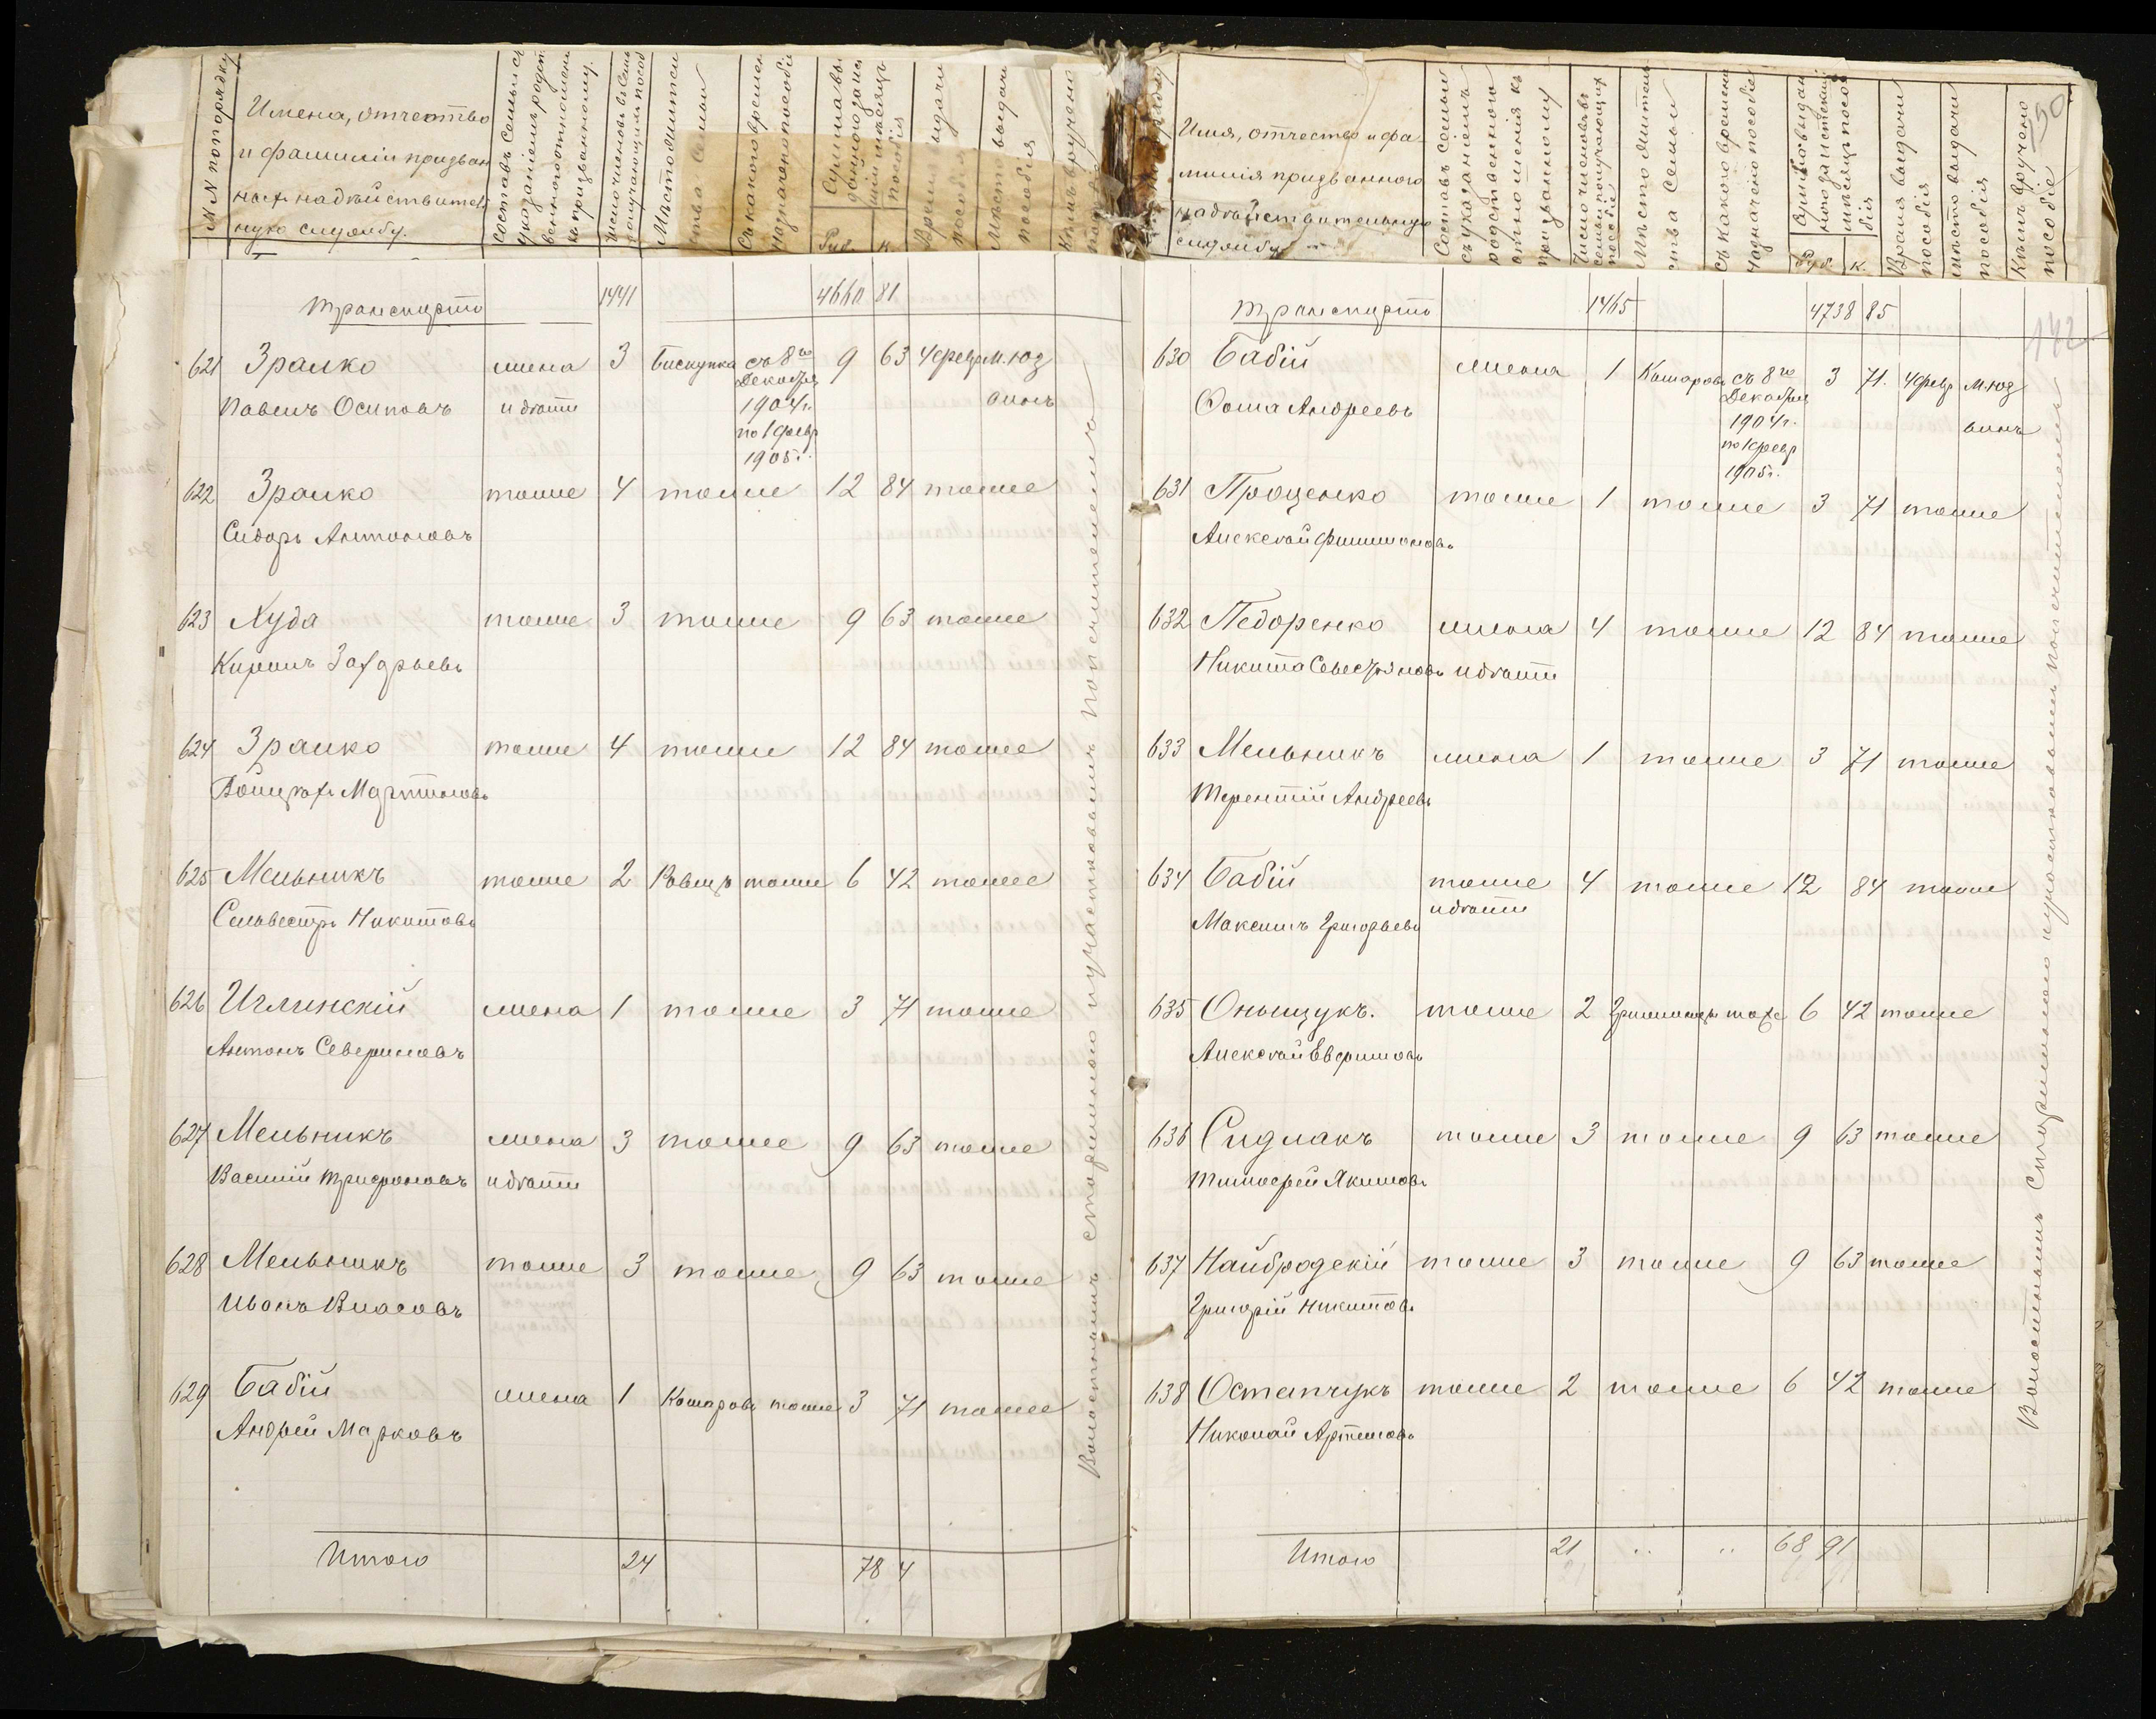 №№ по порядку
Имена, отчество
и фамиліи призван
ныхъ на действитель
ную службу.
Составъ семьи съ
указаніемъ родст
веннаго отношенія
къ призванному.
Число членовъ въ семь
Мѣсто жительства семьи
Съ какого времени
назначено пособіе
Руб. К.
Мѣсто выдачи
пособія
Транспортъ 1441 4660 81
621 Зралко жена 3 Бискупка съ 8го 9 63 4 февр. М. Юз
Декабря
Павелъ Осиповъ и дѣти 1904 г. винъ
по 1 февр
1905 г.
622 Зралко тоже 4 тоже 12 84 тоже
Сидоръ Антоновъ
623 Худа тоже 3 тоже 9 63 тоже
Кирилъ Захарьевъ
624 Зралко тоже 4 тоже 12 84 тоже
Мартиновъ
625 Мельникъ тоже 2 тоже 6 42 тоже
Сильвестръ Никитовъ
626 Иглинскій жена 1 тоже 3 71 тоже
Антонъ Севериновъ
627 Мельникъ жена 3 тоже 9 63 тоже
Василій Трифоновъ и дѣти
628 Мельникъ тоже 3 тоже 9 63 тоже
Иванъ Власовъ
629 Бабій жена 1 Комаровъ тоже 3 71 тоже
Андрей Марковъ
Итого 24 78 4
Волостнымъ старшиною и участковымъ попечителемъ
150
Имя, отчество и фа
милія призваннаго
на дѣйствительную
службу
Составъ семьи
съ указаніемъ
родственного
отношенія къ
призванному
Число членовъ
семьи получающихъ
пособіе
Мѣсто житель
ства семьи
Съ какого времени
назначено пособіе
Руб. К.
Время выдачи
пособія
Мѣсто выдачи
пособія
Кѣмъ вручено
пособіе
142
Транспортъ 1465 4738 85
630 Бабій жена 1 Комаровъ съ 8го 3 71. 4 февр М. Юз
Декабря
Фома Андреевъ 1904 г. винъ
по 1 февр
1905 г.
631 Проценко тоже 1 тоже 3 71 тоже
Алексѣй Филимоновъ
632 Педоренко жена 4 тоже 12 84 тоже
Никита Севестьяновъ и дѣти
633 Мельникъ жена 1 тоже 3 71 тоже
Терентій Андреевъ
634 Бабій тоже 4 тоже 12 84 тоже
и дѣти
Максимъ Григорьевъ
635 Оныщукъ. тоже 2 тоже 6 42 тоже
Алексѣй Евфимовъ
636 Сидлакъ тоже 3 тоже 9 63 тоже
Тимофей Якимовъ
637 Найбродскій тоже 3 тоже 9 63 тоже
Григорій Никитовъ
638 Остапчукъ тоже 2 тоже 6 42 тоже
Николай Артемовъ
Итого 21 " " 68 91
Волостнымъ Старшиною и участковымъ попечителемъ